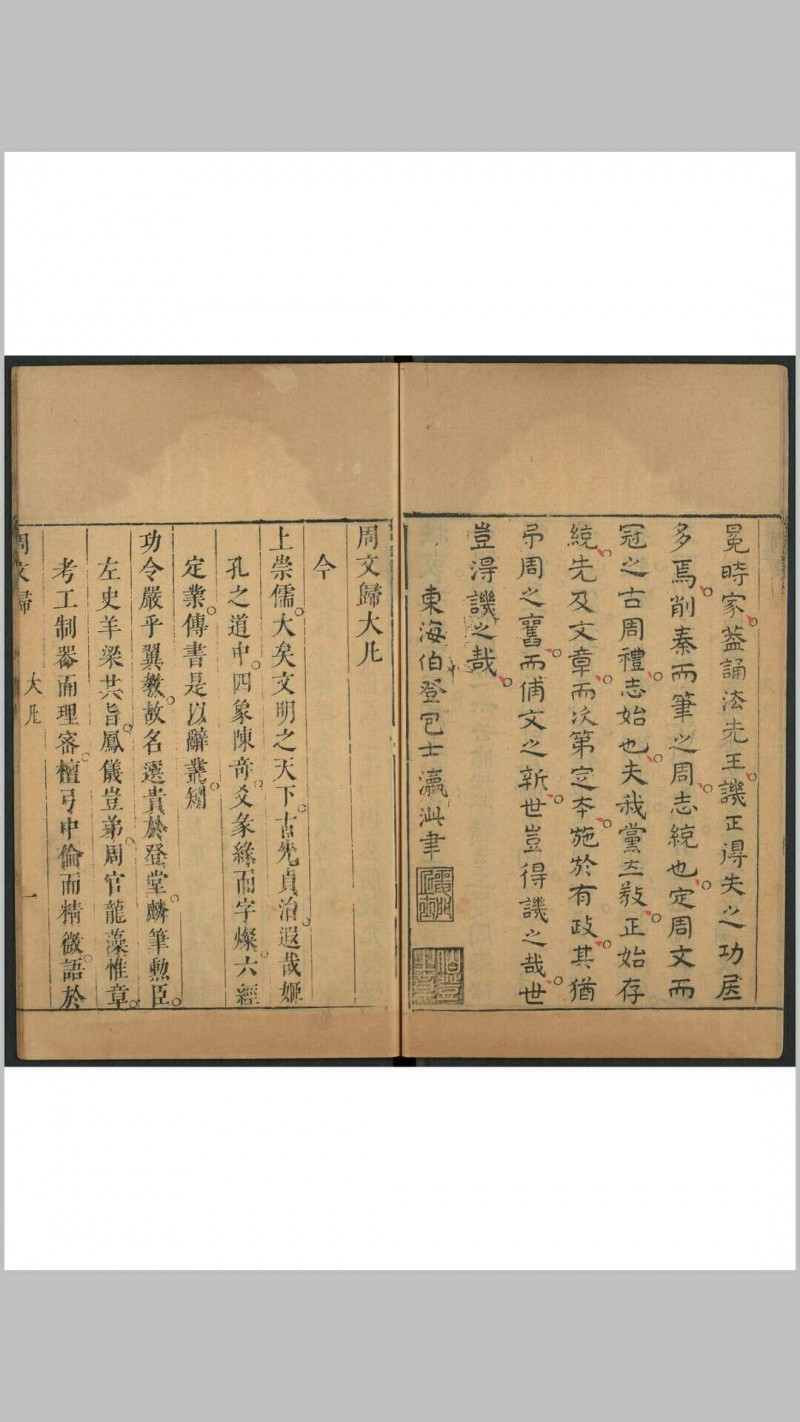 冕時家葢誦法先王譏正得失之功居
多焉削秦而筆之周志統也定周文而
冠之古周禮志始也夫我黨立教正始存
統先及文章而次第定本施於有政其猶
吊周之舊而俌文之新世豈得譏之哉世
豈得譏之哉
東海伯登包士瀛沘聿
周文歸大凡
今
上崇儒大矣文明之天下古先貞治遐哉姬
孔之道中四象陳奇爻彖繇而字燦六經
定業傳書是以辭叢矧
功令嚴乎翼教故名選貴於登堂麟筆勲臣
左史羊梁其旨鳳儀豈弟周官龍藻惟章
考工制器而理審檀弓中倫而精微語於
周文歸
大凡
一